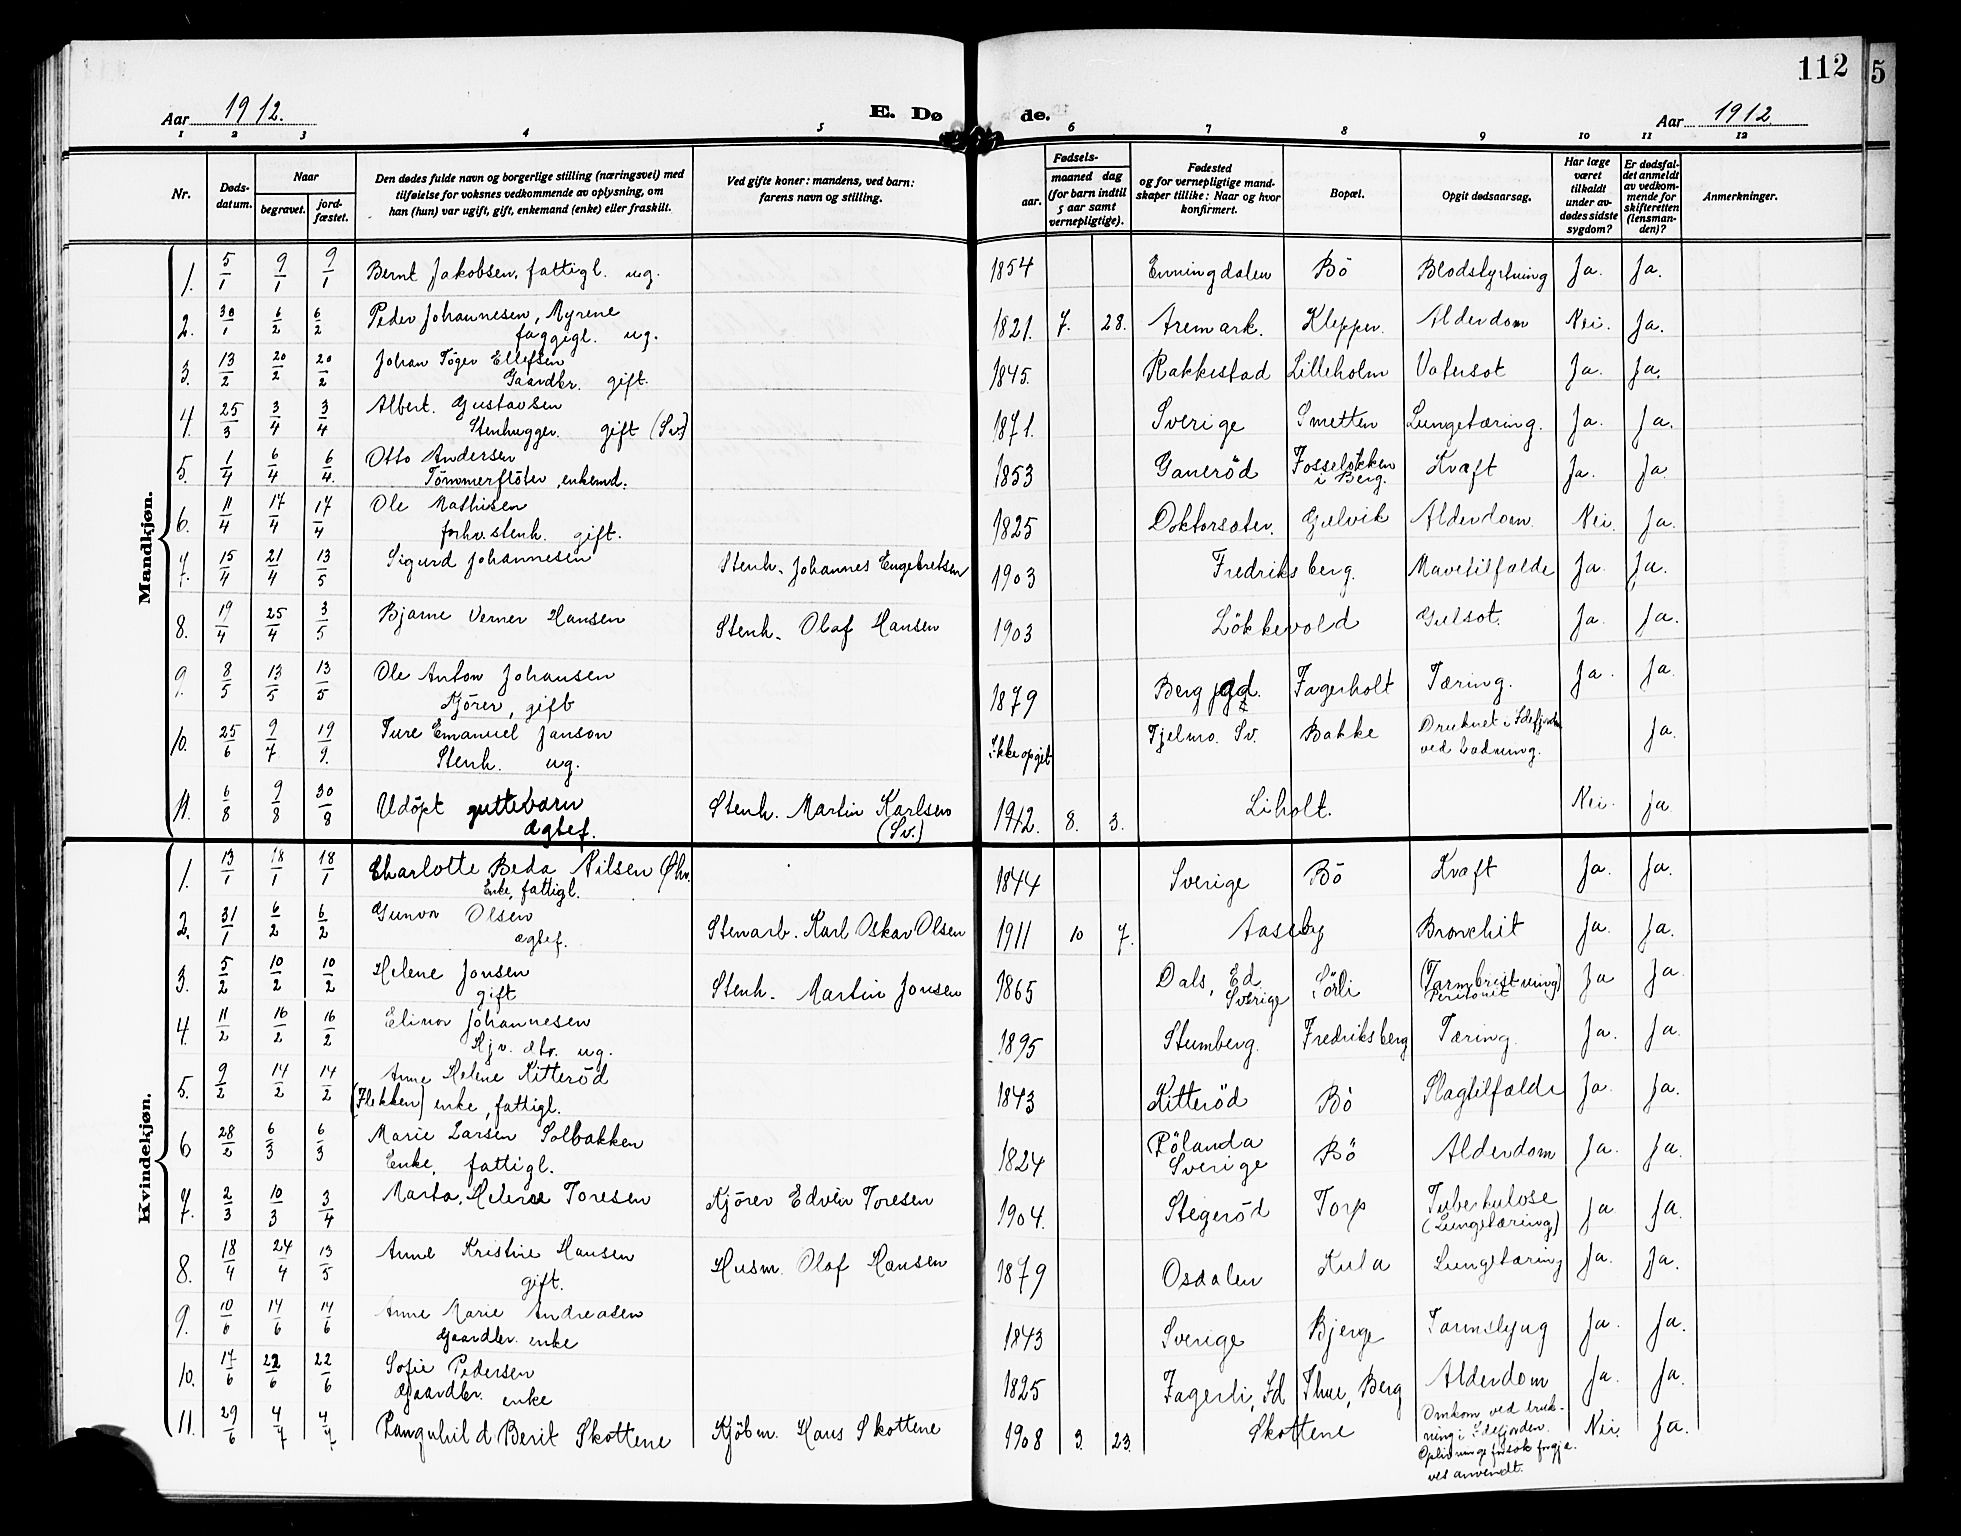 112 5
Aar 1912. E. Dø de. Aar 1912
1 2 3 4 5 6 7 8 9 10 11 12
Nr. Døds-datum. Naar begravet. jord-fæstet. Den dødes fulde navn og borgerlige stilling (næringsvei) med tilføielse for voksnes vedkommende av oplysning, om han (hun) var ugift, gift, enkemand (enke) eller fraskilt. Ved gifte koner: mandens, ved barn: farens navn og stilling. Fødsels- aar. maaned dag (for barn indtil 5 aar samt vernepligtige). Fødested og for vernepligtige mandskaper tillike: Naar og hvor konfirmert. Bopæl. Opgit dødsaarsag. Har læge været tilkaldt under avdødes sidste sygdom? Er dødsfaldet anmeldt av vedkommende for skifteretten (lensmanden)? Anmerkninger.
Mandkjøn.
1. 5/1 9/1 9/1 Bernt Jakobsen, fattigl. ug. 1854 Enningdalen Bö Blodstyrtning Ja. Ja.
2. 30/1 6/2 6/2 Peder Johannesen, Myrene faggigl. ug. 1821. 7. 28. Aremark. Klepper. Alderdom Nei. Ja.
3. 13/2 20/2 20/2 Johan Töger Ellefsen Gaardbr. gift. 1845. Rakkestad Lilleholm Vatersot Ja. Ja.
4. 25/3 3/4 3/4 Albert. Gustavsen Stenhugger. gift (Sv.) 1871. Sverige Smetten Lungetæring. Ja. Ja.
5. 1/4 6/4 6/4. Otto Andersen Tömmerflöter, enkemd. 1853 Ganeröd Fosselökken i Berg. Kræft Ja. Ja
6. 11/4 17/4 17/4 Ole Mathisen forhv. stenh. gift. 1825 Doktorsæter. Gjelvik Alderdom. Nei. Ja.
7. 15/4 21/4 13/5 Sigurd Johannesen Stenh. Johannes Engebretsen 1903 Fredriksberg. Mavetilfælde Ja. Ja.
8. 19/4 25/4 3/5 Bjarne Verner Hansen Stenh. Olaf Hansen 1903 Lökkevold Gulsot. Ja. Ja.
9. 8/5 13/5 13/5 Ole Anton Johansen Kjörer, gift 1879 Berg pgd. Fagerholt Tæring. Ja. Ja.
10. 25/6 9/7 19/9. Ture Emanuel Janson Stenh. ug. Ikke opgit Tjelmo. Sv. Bakke Druknet i Idefjorden ved Ladning. Ja.
11. 6/8 9/8 30/8 Udöpt guttebarn ægtef. Stenh. Martin Karlsen (Sv.) 1912. 8. 3. Liholt. Nei. ja
Kvindekjøn.
1. 13/1 18/1 18/1 Charlotte Beda Nilsen Øhr. Enke, fattigl. 1844 Sverige Bö Kræft Ja. Ja.
2. 31/1 6/2 6/2 Gunvor Olsen ægtef. Stenarb. Karl Oskar Olsen 1911 10 7. Aaseby Bronchit Ja. Ja.
3. 5/2 10/2 10/2 Helene Jonsen gift Stenh. Martin Jonsen 1865 Dals, Ed. Sverige Sörli (Tarmbristning) Peritonit Ja Ja.
4. 11/2 16/2 16/2 Elinor Johannesen Hjv. dtr. ug. 1895 Stumberg. Fredriksberg Tæring. Ja. Ja.
5. 9/2 14/2 14/2 Anne Helene Kitteröd (Flekken) enke, fattigl. 1843 Kitteröd Bö Slagtilfælde Ja. Ja.
6 28/2 6/3 6/3 Marie Larsen Solbakken Enke, fattigl. 1824 Rölanda Sverige Bö Alderdom Ja. Ja.
7. 2/3 10/3 3/4 Marta, Helene Toresen Kjörer Edvin Toresen 1904. Stegeröd Torp Tuberkulose (Lungetæring) Ja Ja.
8. 18/4 24/4 13/5 Anne Kristine Hansen gift. Husm. Olaf Hansen 1879 Osdalen Hula Lungetæring Ja. Ja.
9. 10/6 14/6 14/6 Anne Marie Andreasen Gaardbr. enke 1843 Sverige Bjerge Tarmslyng Ja. Ja.
10. 17/6 22/6 22/6 Sofie Pedersen Gaardbr. enke 1825 Fagerli, Id Thue, Berg Alderdom Ja. Ja.
11. 29/6 4/7 4/7 Rangnhild Berit Skottene Kjöbm. Hans Skottene 1908 3. 23. Skottene Omkom ved drukning i Idefjorden. Oplivningsforsök forgjæves anvendt. Nei. Ja.